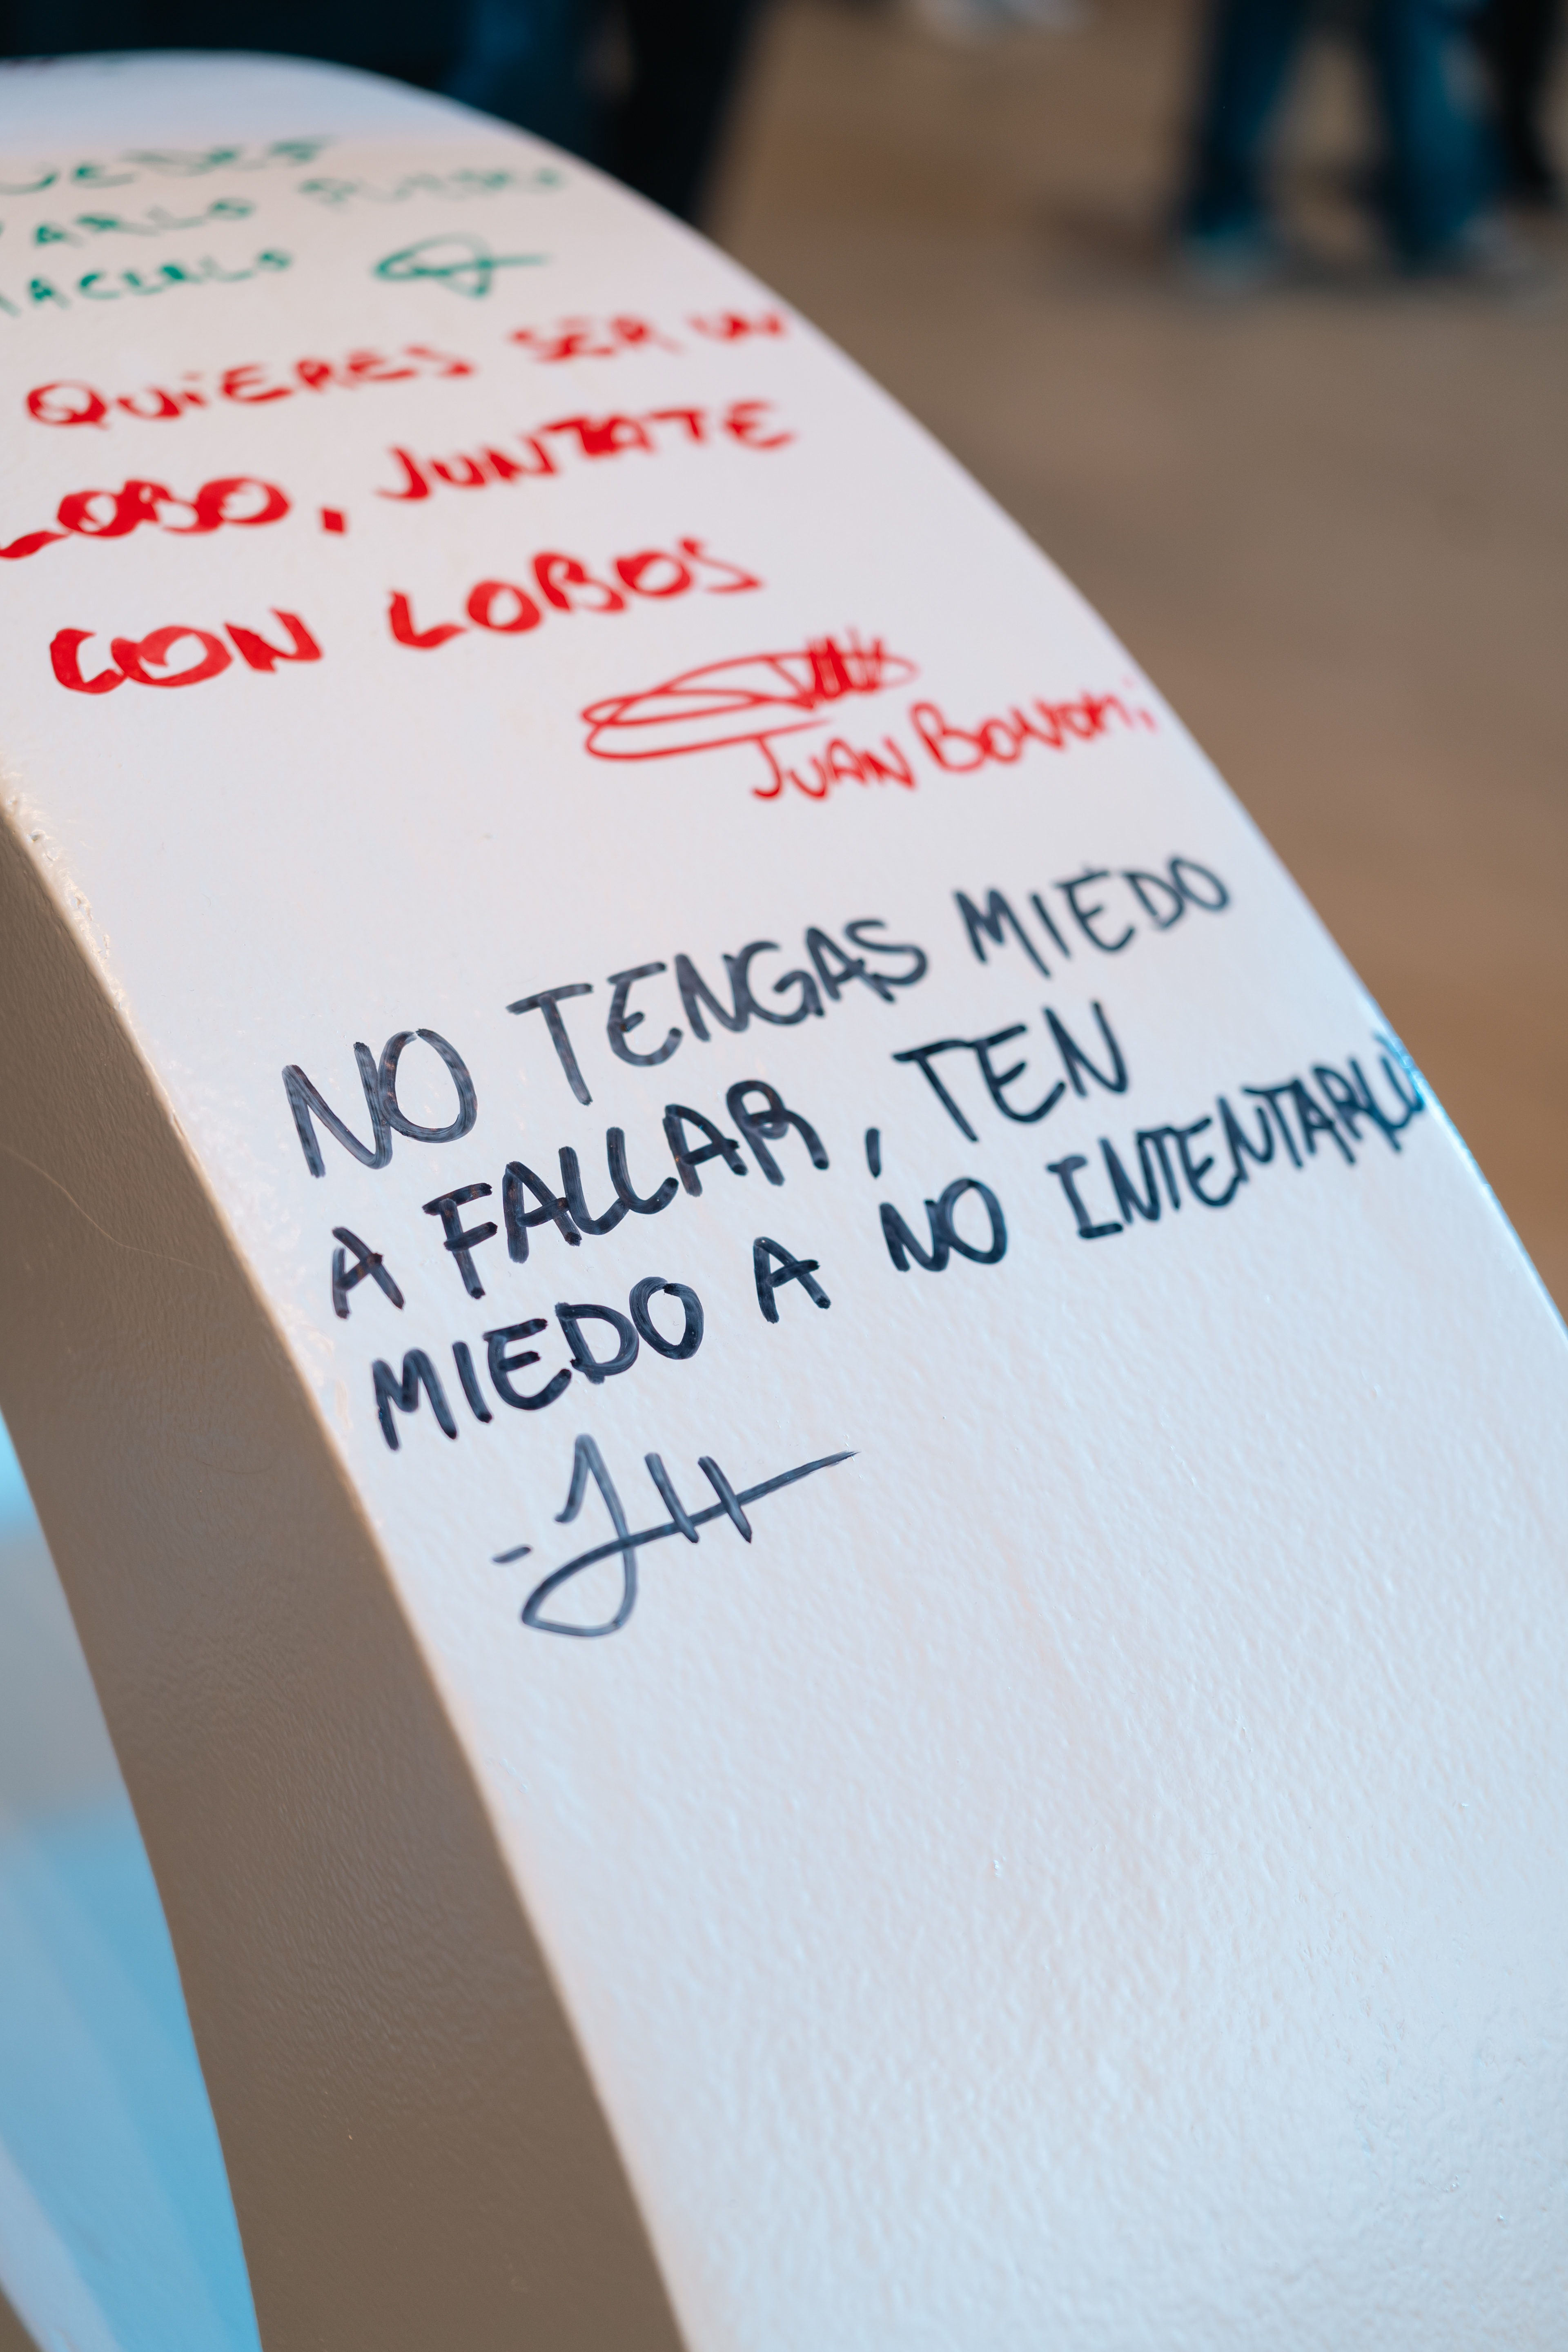 HACERLO
QUIERES SER UN
LOBO, JUNTATE
CON LOBOS
JUAN
NO TENGAS MIEDO
A FALLAR, TEN
MIEDO A NO INTENTARLO